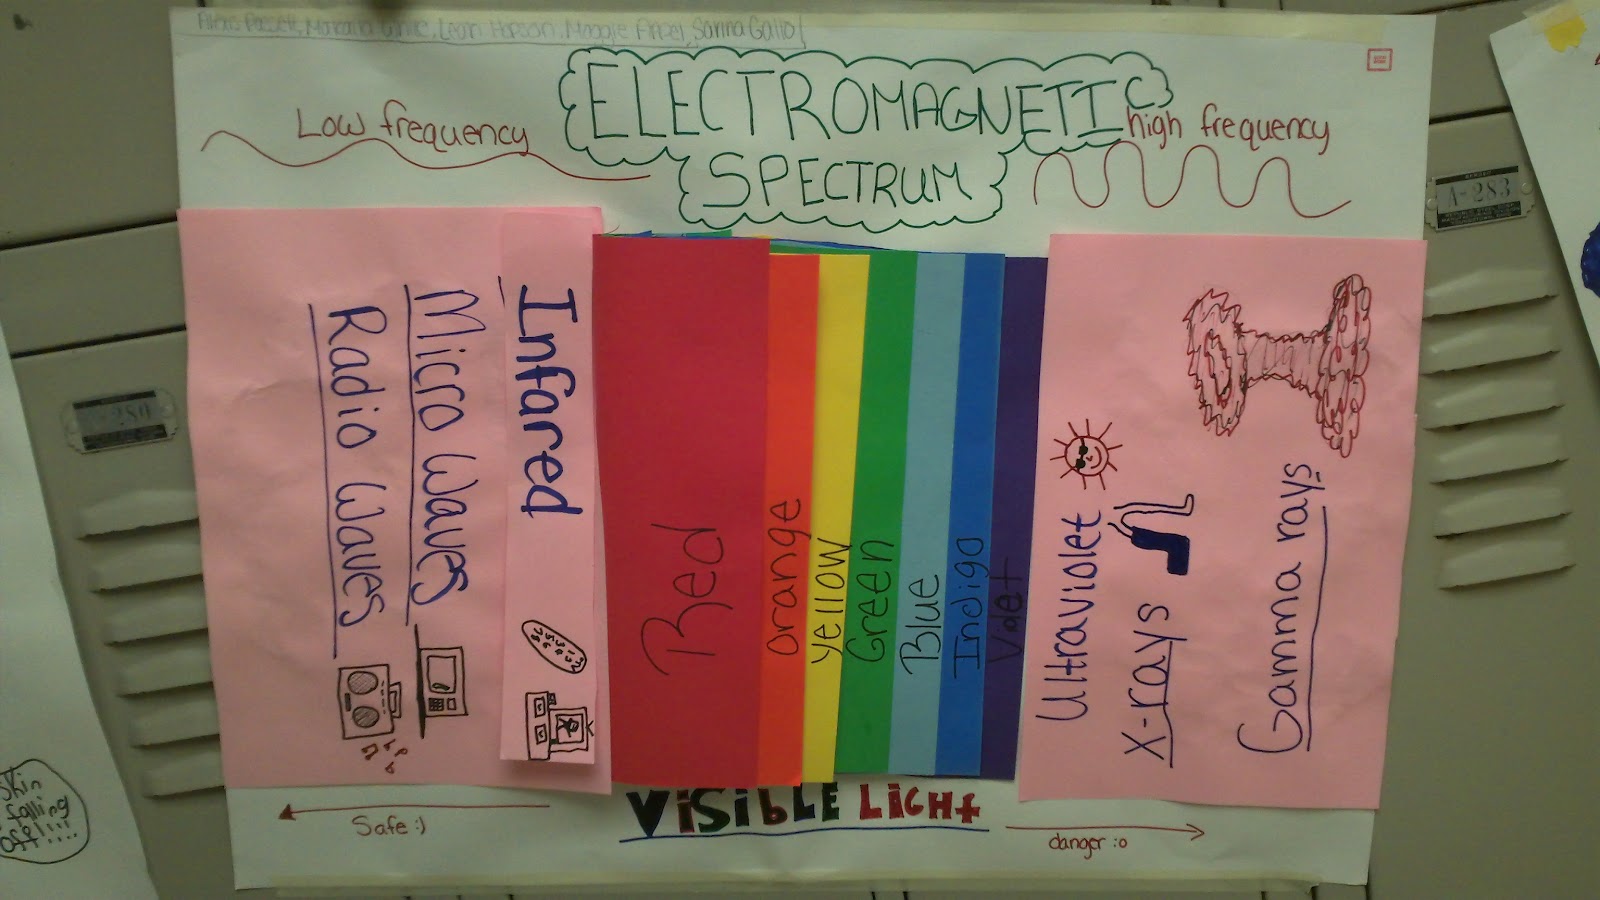 ELECTROMAGNETIC
SPECTRUM
Low frequency
high frequency
Radio Waves
Micro Waves
Infared
Red
Orange
Yellow
Green
Blue
Indigo
Violet
Ultraviolet
X-rays
Gamma rays
Safe :)
VISIBLE LIGHT
danger :o
A-283
Skin
falling
off!!!!